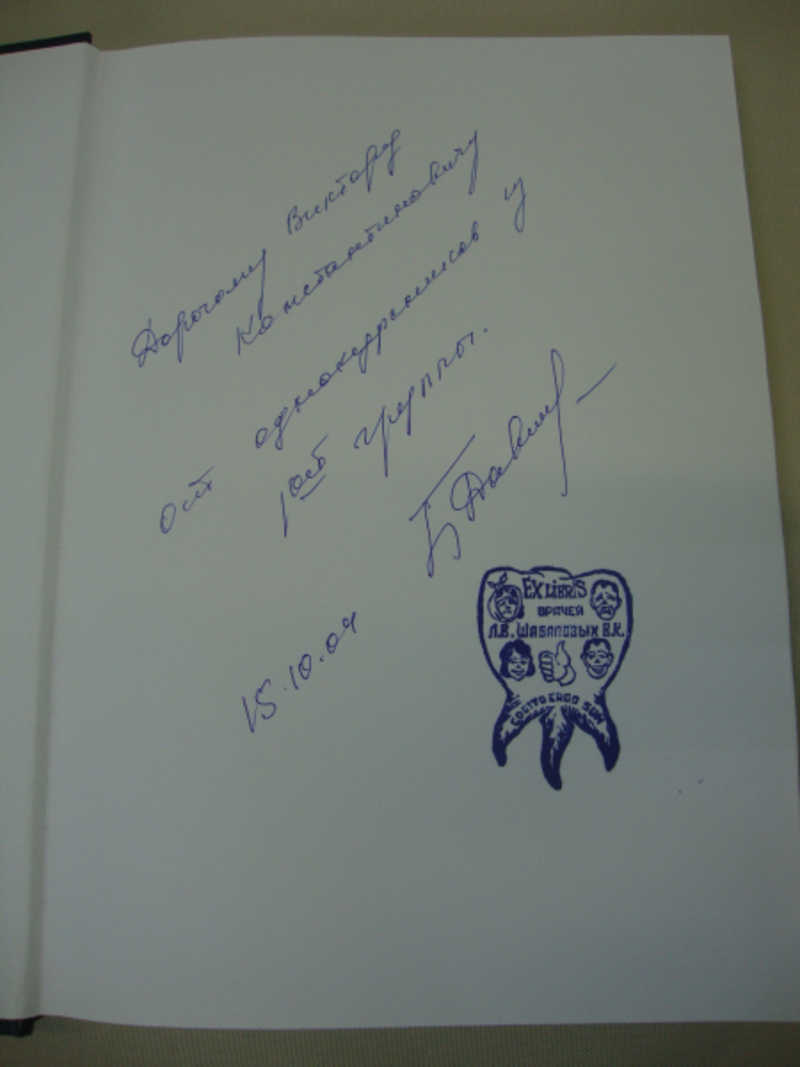 Дорогому Виктору
Константиновичу
от однокурсников из
10ой группы.
15.10.04
EX LIBRIS
ВРАЧЕЙ
Л.В. ШАБАЛОВЫХ В.К.
COGITO ERGO SUM